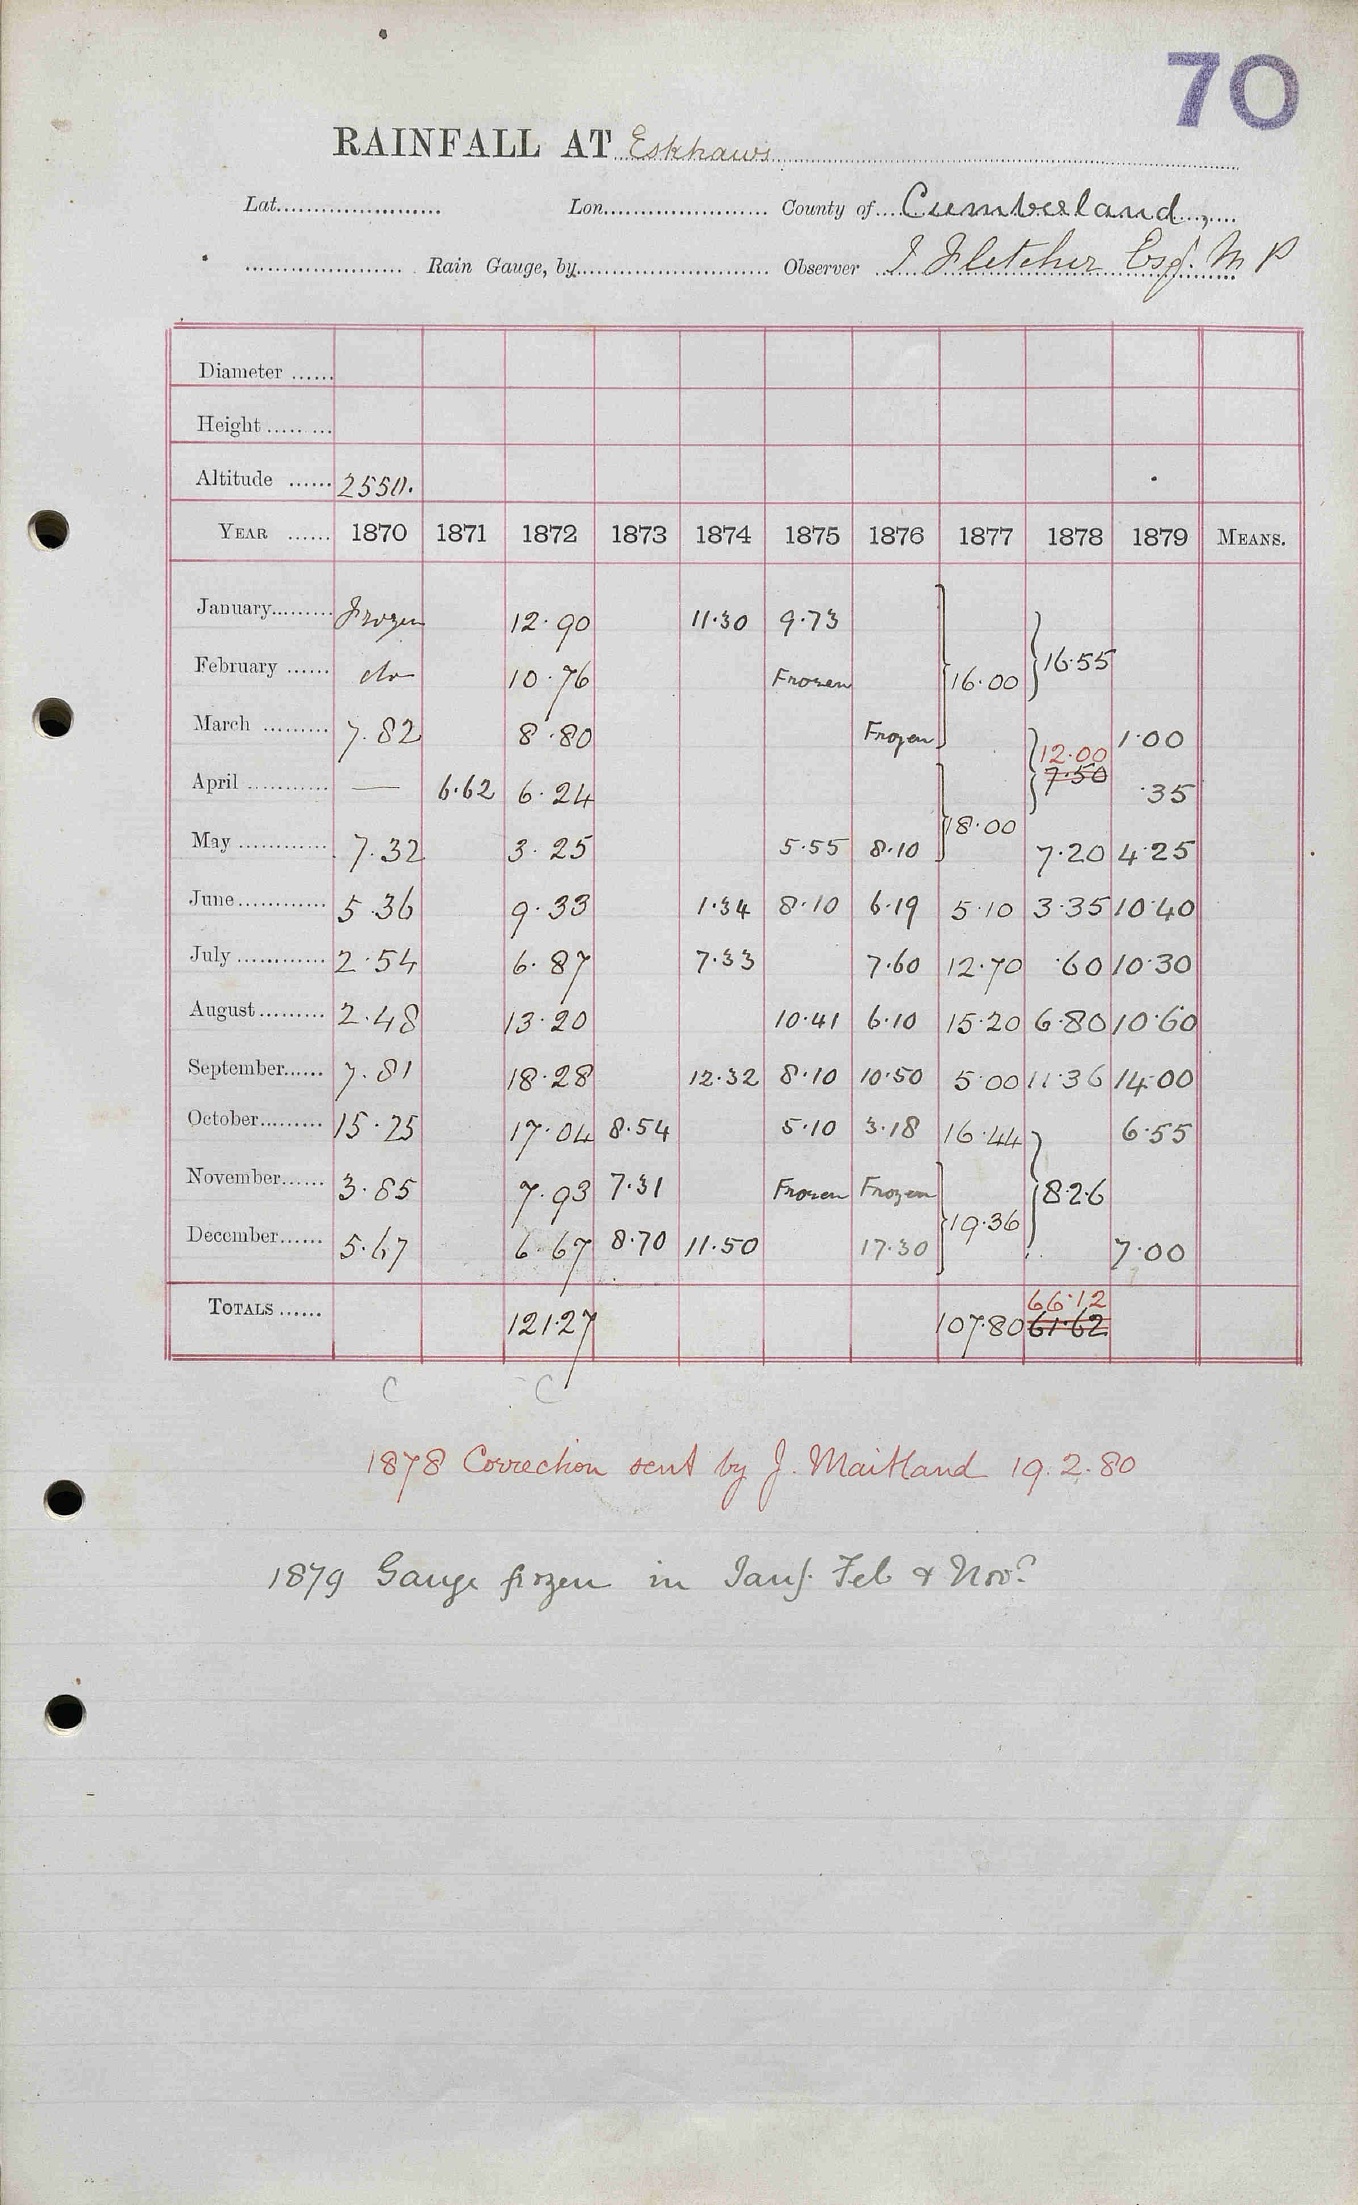 70
RAINFALL AT Eskhaws
Lat. Lon. County of Cumberland,
Rain Gauge, by Observer I Fletcher Esq. M P
Diameter
Height
Altitude 2550.
YEAR 1870 1871 1872 1873 1874 1875 1876 1877 1878 1879 MEANS.
January Frozen 12.90 11.30 9.73
February do 10.76 Frozen 16.00 16.55
March 7.82 8.80 Frozen 12.00 1.00
April — 6.62 6.24 7.50 .35
May 7.32 3.25 5.55 8.10 18.00 7.20 4.25
June 5.36 9.33 1.34 8.10 6.19 5.10 3.35 10.40
July 2.54 6.87 7.33 7.60 12.70 .60 10.30
August 2.48 13.20 10.41 6.10 15.20 6.80 10.60
September 7.81 18.28 12.32 8.10 10.50 5.00 11.36 14.00
October 15.25 17.04 8.54 5.10 3.18 16.44 6.55
November 3.85 7.93 7.31 Frozen Frozen 8.26
December 5.67 6.67 8.70 11.50 17.30 19.36 7.00
TOTALS 66.12
121.27 107.80 61.62
C C
1878 Correction sent by J. Maitland 19.2.80
1879 Gauge frozen in Jany. Feb & Novr.